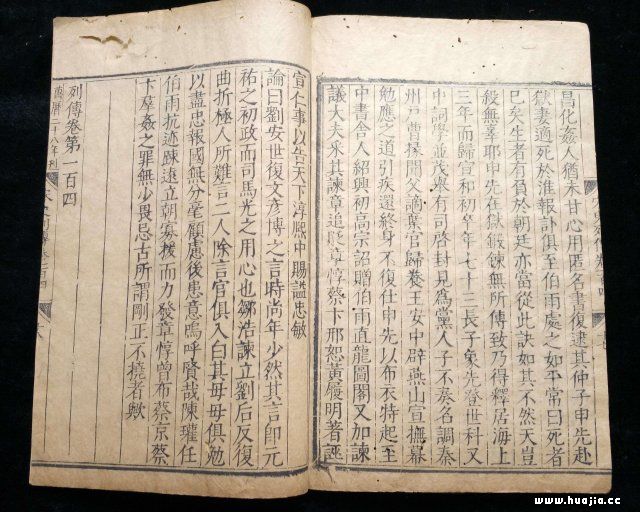 昌化姦人猶未甘心用匿名書復逮其仲子申先赴
獄妻適死於淮報訃俱至伯雨處之如平常曰死者
已矣生者有負於朝廷亦當從此訣如其不然天豈
殺無辜耶申先在獄鍛鍊無所傅致乃得釋居海上
三年而歸宣和初卒年七十三長子象先登世科又
中詞學兼茂舉有司啓封見爲黨人子不奏名調秦
州戶曹掾聞父謫棄官歸養王安中辟燕山宣撫幕
勉應之道引疾還終身不復仕申先以布衣特起至
中書舍人紹興初高宗詔贈伯雨直龍圖閣又加諫
議大夫采其諫章追貶章惇蔡卞邢恕黃履明著誣
宣仁事以告天下淳熙中賜諡忠敏
論曰劉安世復文彥博之言時尚年少然其言即元
祐之初政而司馬光之用心也鄒浩諫立劉后反復
曲折極人所難言二人除言官俱入白其母母俱勉
以盡忠報國無分毫顧慮後患意嗚呼賢哉陳瓘任
伯雨抗迹踈遠立朝寡援而力發章惇曾布蔡京蔡
卞羣姦之罪無少畏忌古所謂剛正不撓者歟
列傳卷第一百四
www.huajia.cc